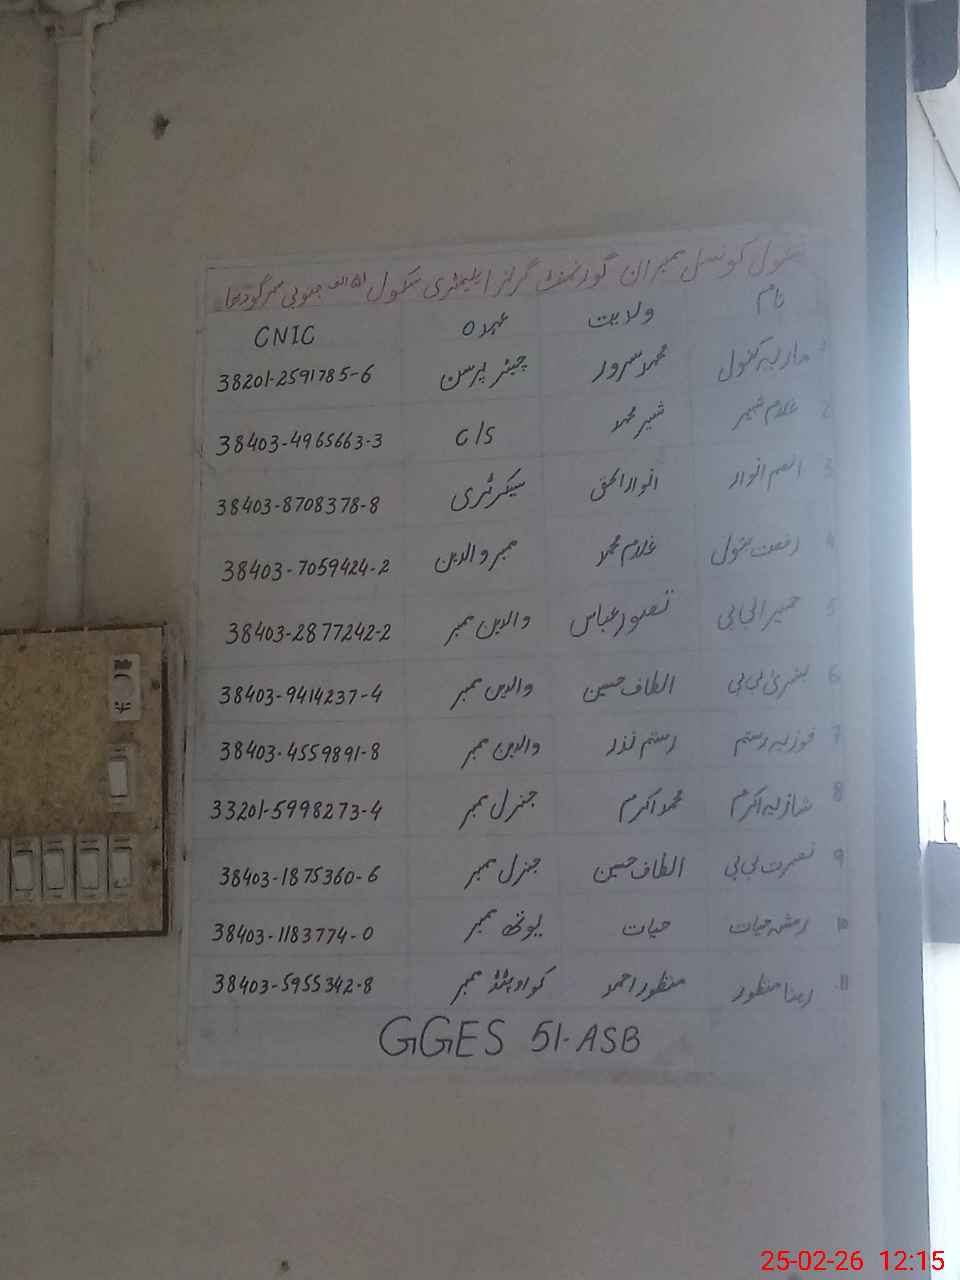 سکول کونسل ممبران گورنمنٹ گرلز ایلیمنٹری سکول 51 الف جنوبی سرگودھا
نام ولدیت عہدہ CNIC
1 ماریہ بتول محمد سرور چیئر پرسن 38201-2591785-6
2 غلام شبیر شیر محمد C/S 38403-4965663-3
3 انعم انوار انوارالحق سیکرٹری 38403-8708378-8
4 رفعت بتول غلام محمد ممبر والدین 38403-7059424-2
5 تصور عباس والدین ممبر 38403-2877242-2
6 بشریٰ بی بی الطاف حسین والدین ممبر 38403-9414237-4
7 فوزیہ رستم رستم نذر والدین ممبر 38403-4559891-8
8 شازیہ اکرم محمد اکرم جنرل ممبر 33201-5998273-4
9 نصرت بی بی الطاف حسین جنرل ممبر 38403-1875360-6
10 رمشہ حیات حیات یوتھ ممبر 38403-1183774-0
11 منظور منظور احمد کواوپٹڈ ممبر 38403-5955342-8
GGES 51-ASB
25-02-26 12:15